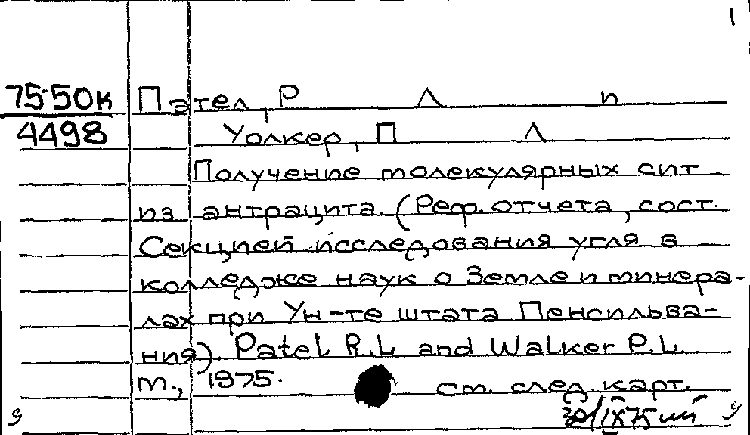 75-50к Пател, Р Л п
4498 Уолкер, П Л
Получение молекулярных сит
из антрацита. (Реф. отчета, сост.
Секцией исследования угля в
колледже наук о Земле и минера-
лах при Ун-те штата Пенсильва-
ния). Patel R.L. and Walker P.L.
м., 1975. см. след. карт.